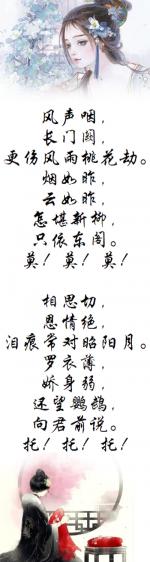 风声咽，
长门阔，
更伤风雨桃花劫。
烟如昨，
云如昨，
怎堪新柳，
只依东阁。
莫！莫！莫！
相思切，
恩情绝，
泪痕常对昭阳月。
罗衣薄，
娇身弱，
还望鹦鹉，
向君前说。
托！托！托！